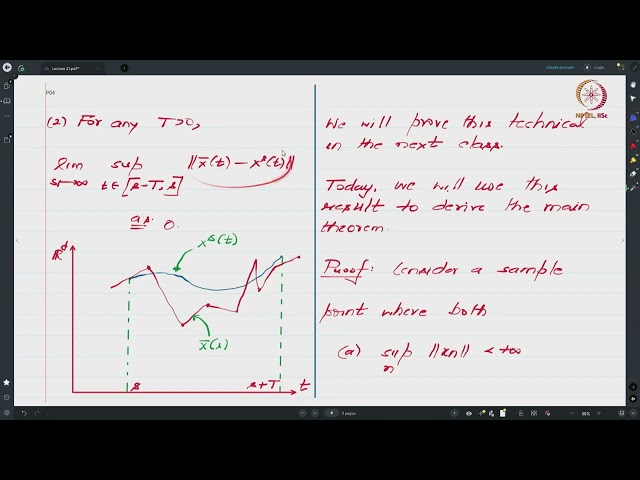 Lecture 21.pdf*
Create account
Login
P04
NPTEL, IISc
(2) For any T>0,
lim sup ||x̄(t) - x^s(t)||
s→∞ t∈[s-T, s]
a.s. 0.
ℝ^d
x^s(t)
x̄(s)
s
s+T
t
We will prove this technical
in the next class.
Today, we will use this
result to derive the main
theorem.
Proof: Consider a sample
point where both
(a) sup ||xn|| < +∞
n
4
9 pages